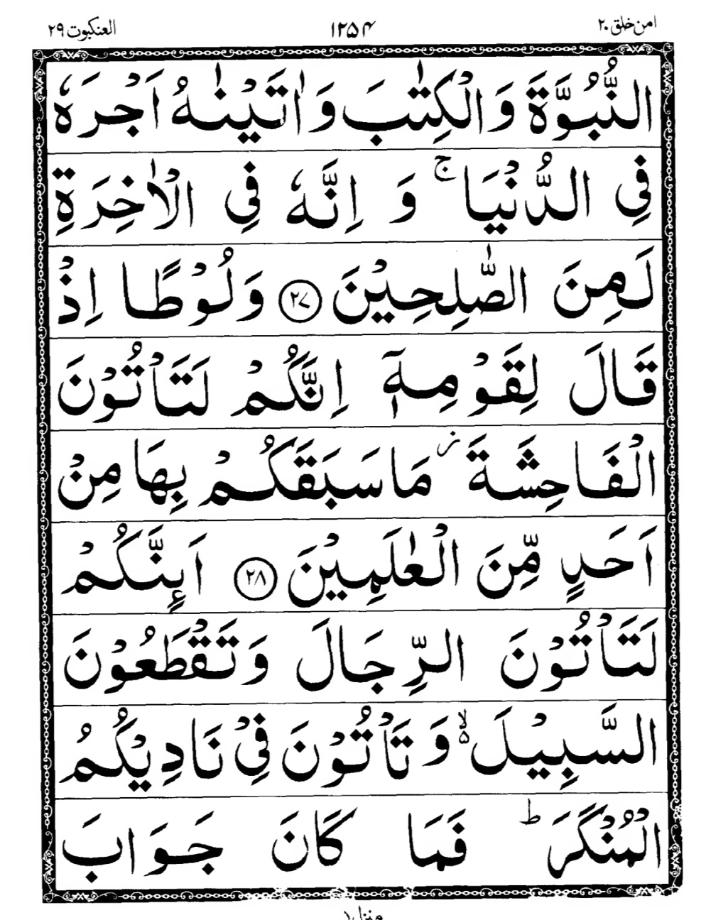 امن خلق ۲۰ ۱۲۵۴ العنکبوت ۲۹
النُّبُوَّةَ وَالْكِتٰبَ وَاٰتَيْنٰهُ اَجْرَهٗ
فِي الدُّنْيَا ۚ وَ اِنَّهٗ فِي الْاٰخِرَةِ
لَمِنَ الصّٰلِحِيْنَ ۲۷ وَلُوْطًا اِذْ
قَالَ لِقَوْمِهٖٓ اِنَّكُمْ لَتَاْتُوْنَ
الْفَاحِشَةَ ز مَاسَبَقَكُمْ بِهَا مِنْ
اَحَدٍ مِّنَ الْعٰلَمِيْنَ ۲۸ اَىِٕنَّكُمْ
لَتَاْتُوْنَ الرِّجَالَ وَتَقْطَعُوْنَ
السَّبِيْلَ ۙ۵ وَتَاْتُوْنَ فِيْ نَادِيْكُمُ
الْمُنْكَرَ ؕ فَمَا كَانَ جَوَابَ
منزل